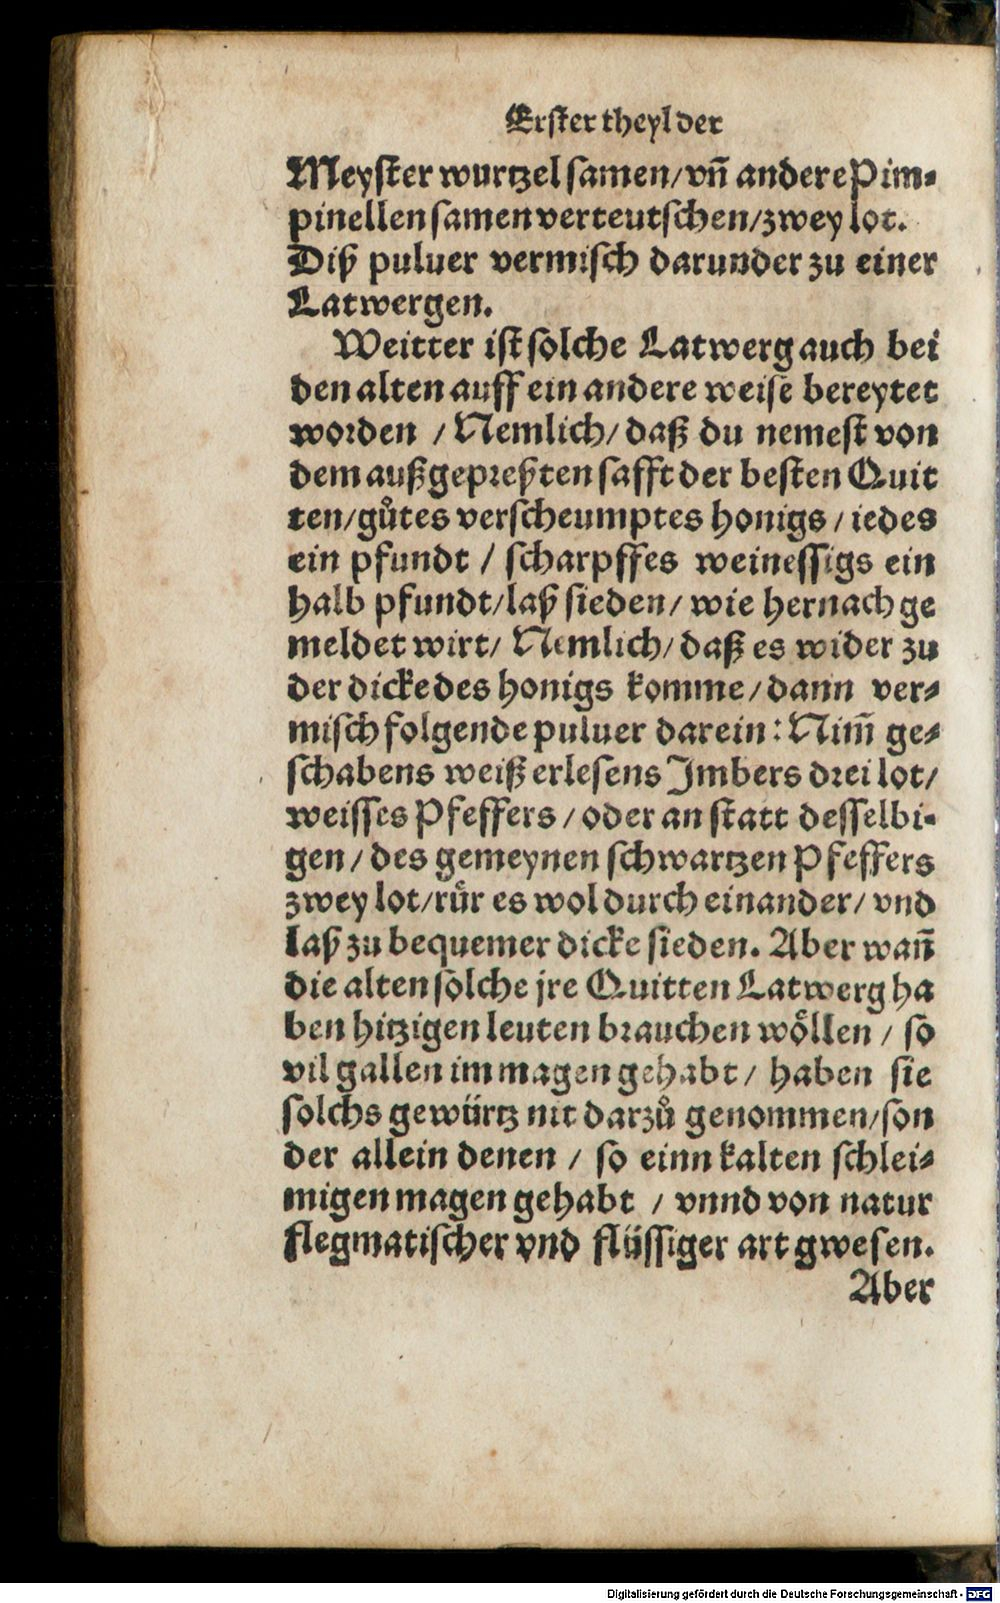 Erster theyl der
Meyster wurtzel samen/ vñ andere Pim-
pinellen samen verteutschen/ zwey lot.
Diß puluer vermisch darunder zu einer
Latwergen.
Weitter ist solche Latwerg auch bei
den alten auff ein andere weise bereytet
worden / Nemlich/ daß du nemest von
dem außgepreßten safft der besten Quit
ten/ gůtes verscheumptes honigs / iedes
ein pfundt / scharpffes weinessigs ein
halb pfundt/ laß sieden/ wie hernach ge
meldet wirt/ Nemlich/ daß es wider zu
der dicke des honigs komme/ dann ver-
misch folgende puluer darein: Nim̃ ge-
schabens weiß erlesens Imbers drei lot/
weisses Pfeffers / oder an statt desselbi-
gen / des gemeynen schwartzen Pfeffers
zwey lot/ růr es wol durch einander/ vnd
laß zu bequemer dicke sieden. Aber wañ
die alten solche jre Quitten Latwerg ha
ben hitzigen leuten brauchen wöllen / so
vil gallen im magen gehabt / haben sie
solchs gewürtz nit darzů genommen/ son
der allein denen / so einn kalten schlei-
migen magen gehabt / vnnd von natur
flegmatischer vnd flüssiger art gwesen.
Aber
Digitalisierung gefördert durch die Deutsche Forschungsgemeinschaft - DFG